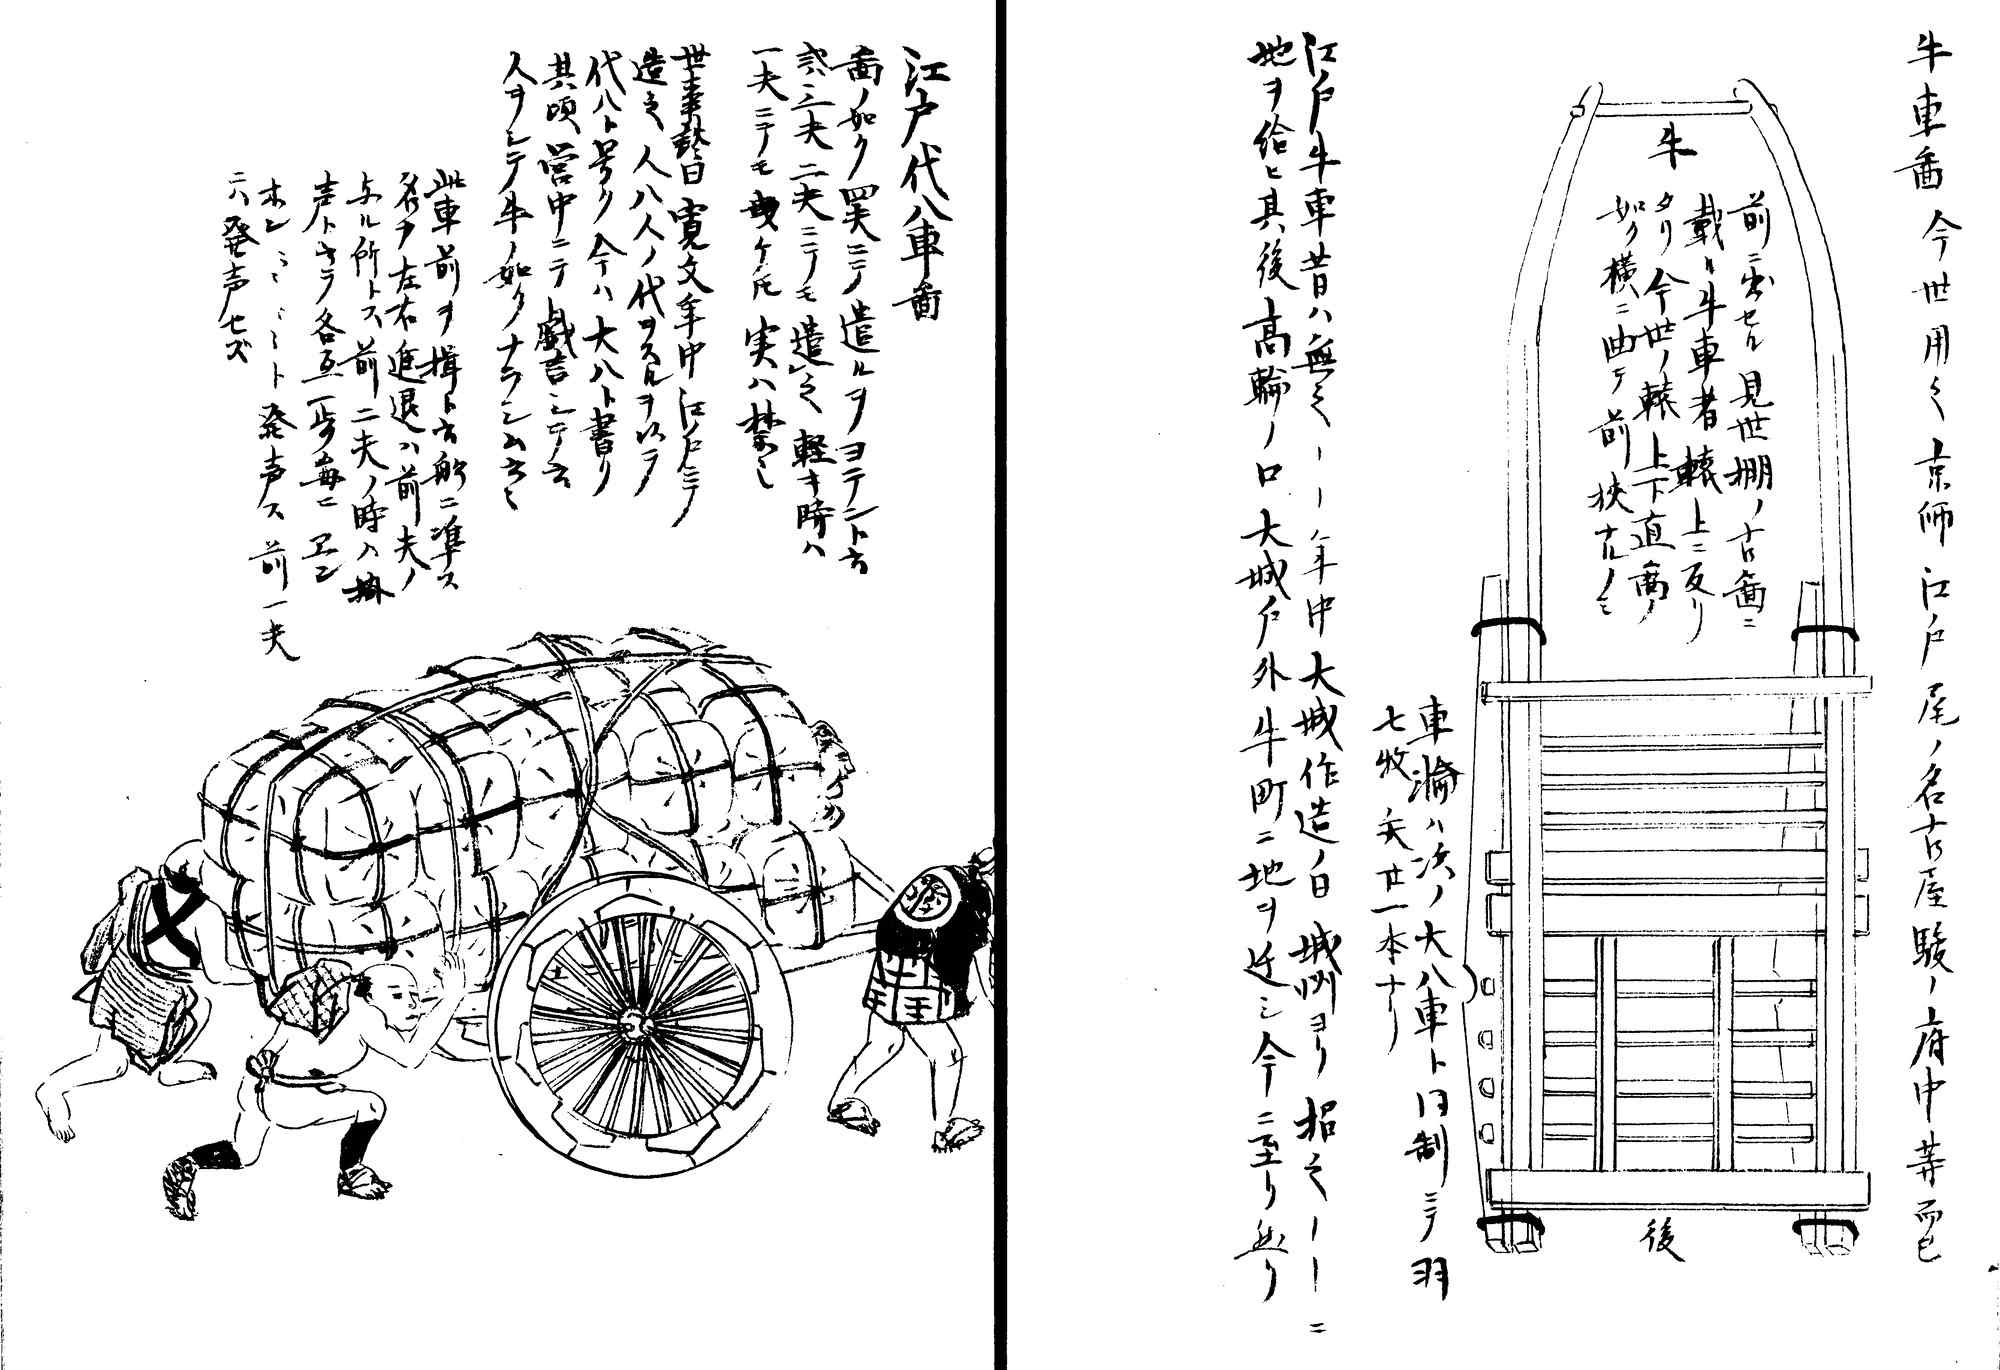 牛車啚 今世用之 京師 江戸 尾ノ名古屋 駿ノ府中 等而已
牛
前ニ出セル見世棚ノ古啚ニ
載タル牛車者轅上ニ反リ
タリ今世ノ轅上下直
如ク横ニ曲テ前狭ナルノミ
後
車輪ハ次ノ大八車ト同制ニテ羽
七枚矢廿一本ナリ
江戸牛車昔ハ無之
年中大城作造ノ日城州ヨリ招之
ニ
地ヲ給ヒ其後高輪ノ口大城戸外牛町ニ地ヲ
今ニ至リ
江戸代八車啚
啚ノ如ク四夫ニテ遣ルヲヨテント云
或ハ三夫二夫ニテモ遣之軽キ時ハ
一夫ニテモ曳ケ𪜈実ハ禁シ
世事談曰寛文年中江戸ニテ
造之人八人ノ代ヲスルヲ以テ
代八ト号ク今ハ大八ト書リ
其頃営中ニテ戯言シテ云
人ヲシテ牛ノ如クナラシム云々
此車前ヲ揖ト云船ニ準ス
名ヲ左右進退ハ前夫ノ
ル所トス前二夫ノ時ハ掛
声トキラ各互一歩毎ニヱン
ホンミミミミト発声ス前一夫
ニハ発声セズ